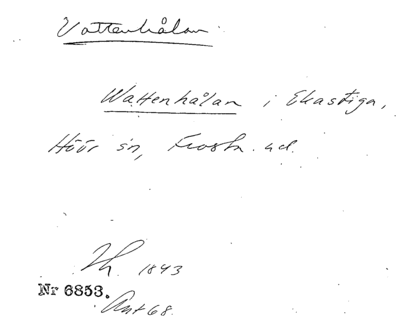 Vattenhålan
Wattenhålan i Ekastiga,
Höör sn, Frosta hd.
Th. 1843
Nr 6853.
Ant 68.